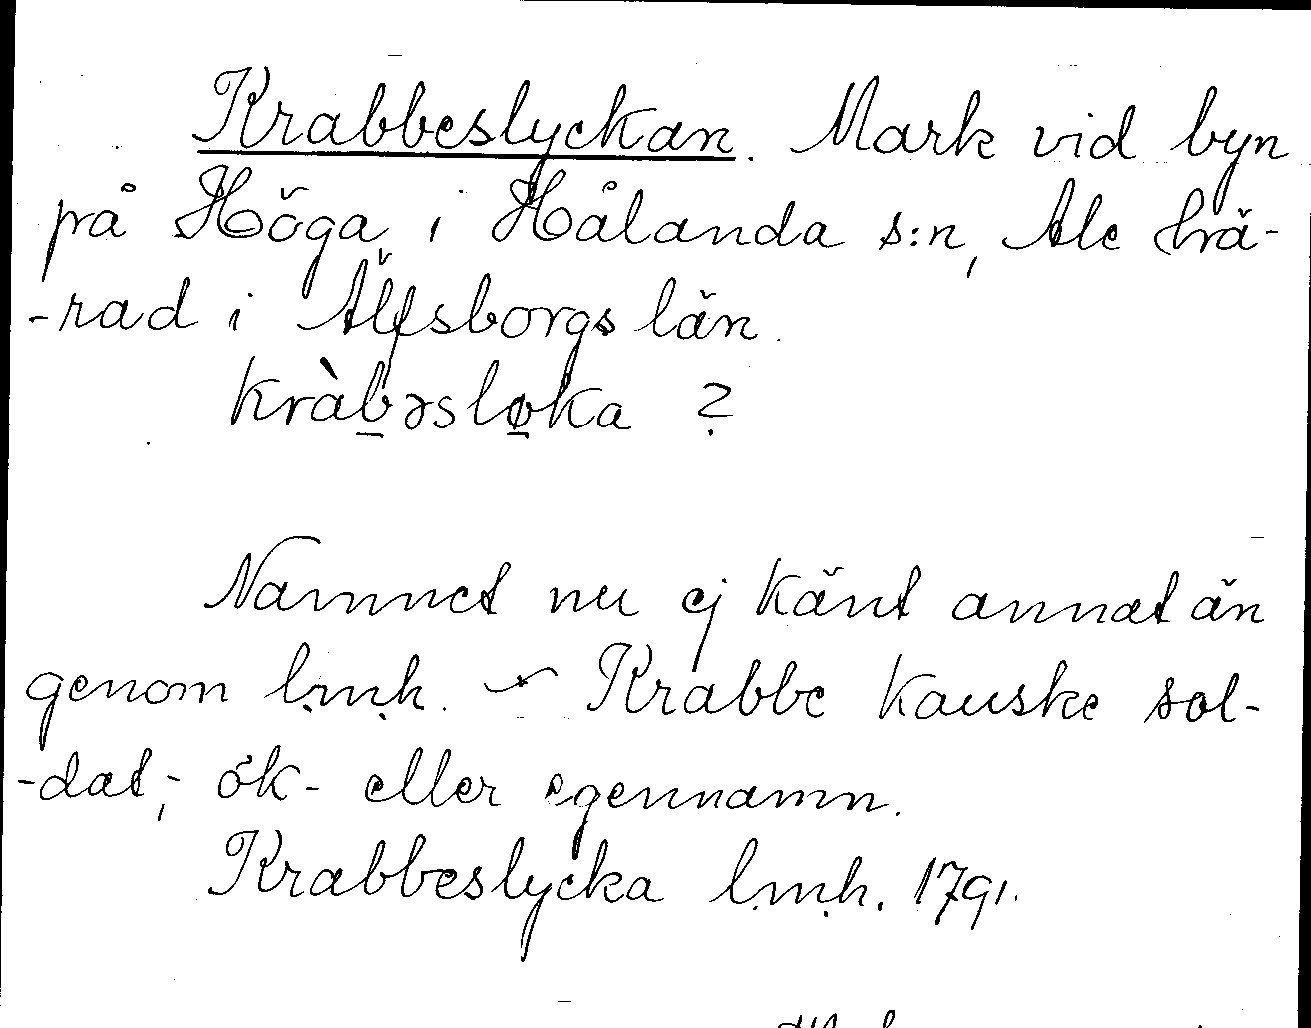 Krabbeslyckan. Mark vid byn
på Höga, i Hålanda s:n, Ale hä-
-rad i Älfsborgs län.
kràb̲əslø̲ka ?
Namnet nu ej känt annat än
genom l.m.h. ~ Krabbe kanske sol-
-dat,- ök- eller egennamn.
Krabbeslycka l.m.h. 1791.